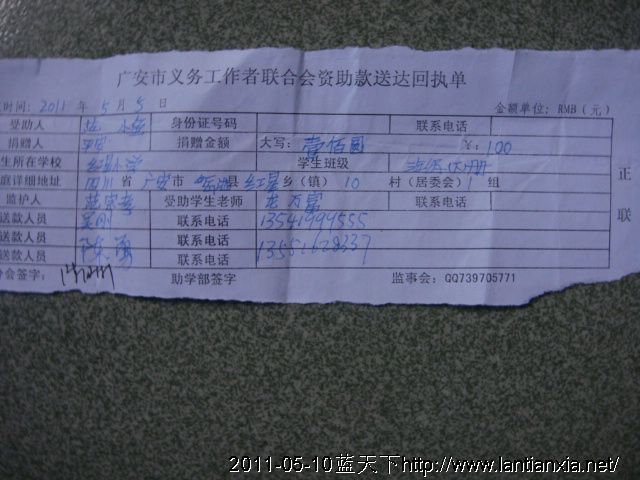 广安市义务工作者联合会资助款送达回执单
时间: 2011 年 5 月 5 日 金额单位: RMB (元)
受助人 身份证号码 联系电话
捐赠人 捐赠金额 大写: 壹佰圆 ¥: 100
生所在学校 红星小学 学生班级
庭详细地址 四川 省 广安 市 县 红星 乡 (镇) 10 村 (居委会) 1 组
监护人 受助学生老师 联系电话
送款人员 吴刚 联系电话 13541999555
送款人员 联系电话
送款人员 陈勇 联系电话 13551628337
正联
协会签字: 助学部签字 监事会: QQ739705771
2011-05-10蓝天下http://www.lantianxia.net/